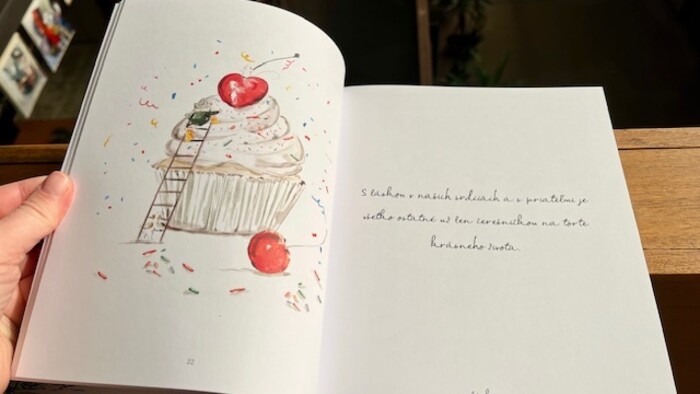 S láskou v našich srdciach a s priateľmi je
všetko ostatné už len čerešničkou na torte
krásneho života.
22